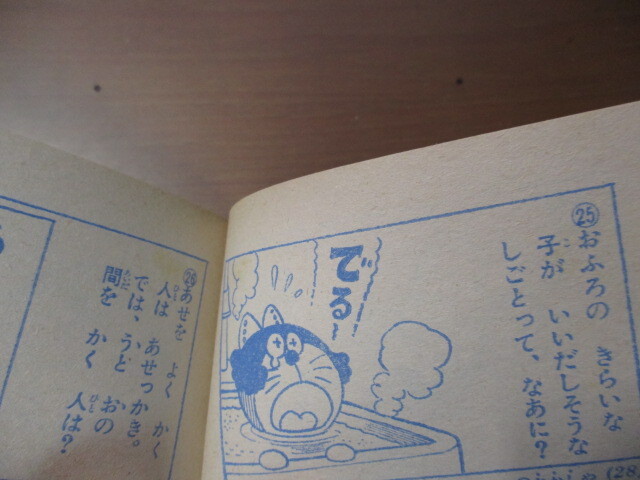 ㉕おふろの きらいな
子が いいだしそうな
しごとって、なあに?
でる〜
㉖あせを よく かく
人は あせっかき。
では、うど おの
間を かく 人は?